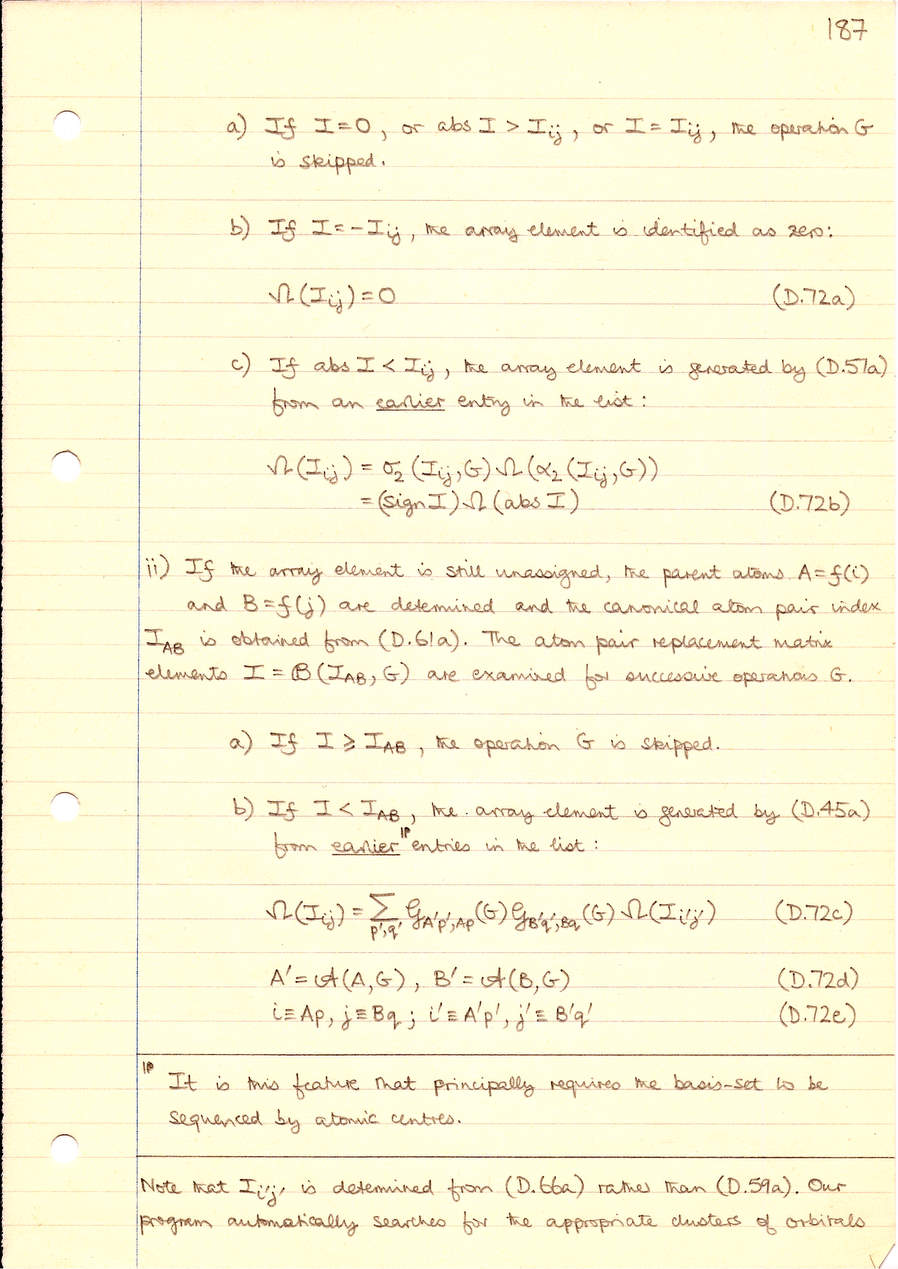 187
a) If I=0, or abs I > Iij, or I = Iij, the operation G
is skipped.
b) If I=-Iij, the array element is identified as zero:
Ω(Iij)=0 (D.72a)
c) If abs I < Iij, the array element is generated by (D.51a)
from an earlier entry in the list:
Ω(Iij) = σ2(Iij,G)Ω(α2(Iij,G))
=(sign I)Ω(abs I) (D.72b)
ii) If the array element is still unassigned, the parent atoms A=f(i)
and B=f(j) are determined and the canonical atom pair index
IAB is obtained from (D.61a). The atom pair replacement matrix
elements I = ℬ(IAB,G) are examined for successive operations G.
a) If I ≥ IAB, the operation G is skipped.
b) If I < IAB, the array element is generated by (D.45a)
from earlier^1P entries in the list:
Ω(Iij) = Σp',q' 𝒢A'p',Ap(G) 𝒢B'q',Bq(G) Ω(Ii'j') (D.72c)
A' = 𝒜(A,G), B' = 𝒜(B,G) (D.72d)
i≡Ap, j≡Bq; i'≡A'p', j'≡B'q' (D.72e)
1P It is this feature that principally requires the basis-set to be
sequenced by atomic centres.
Note that Ii'j' is determined from (D.66a) rather than (D.59a). Our
program automatically searches for the appropriate clusters of orbitals